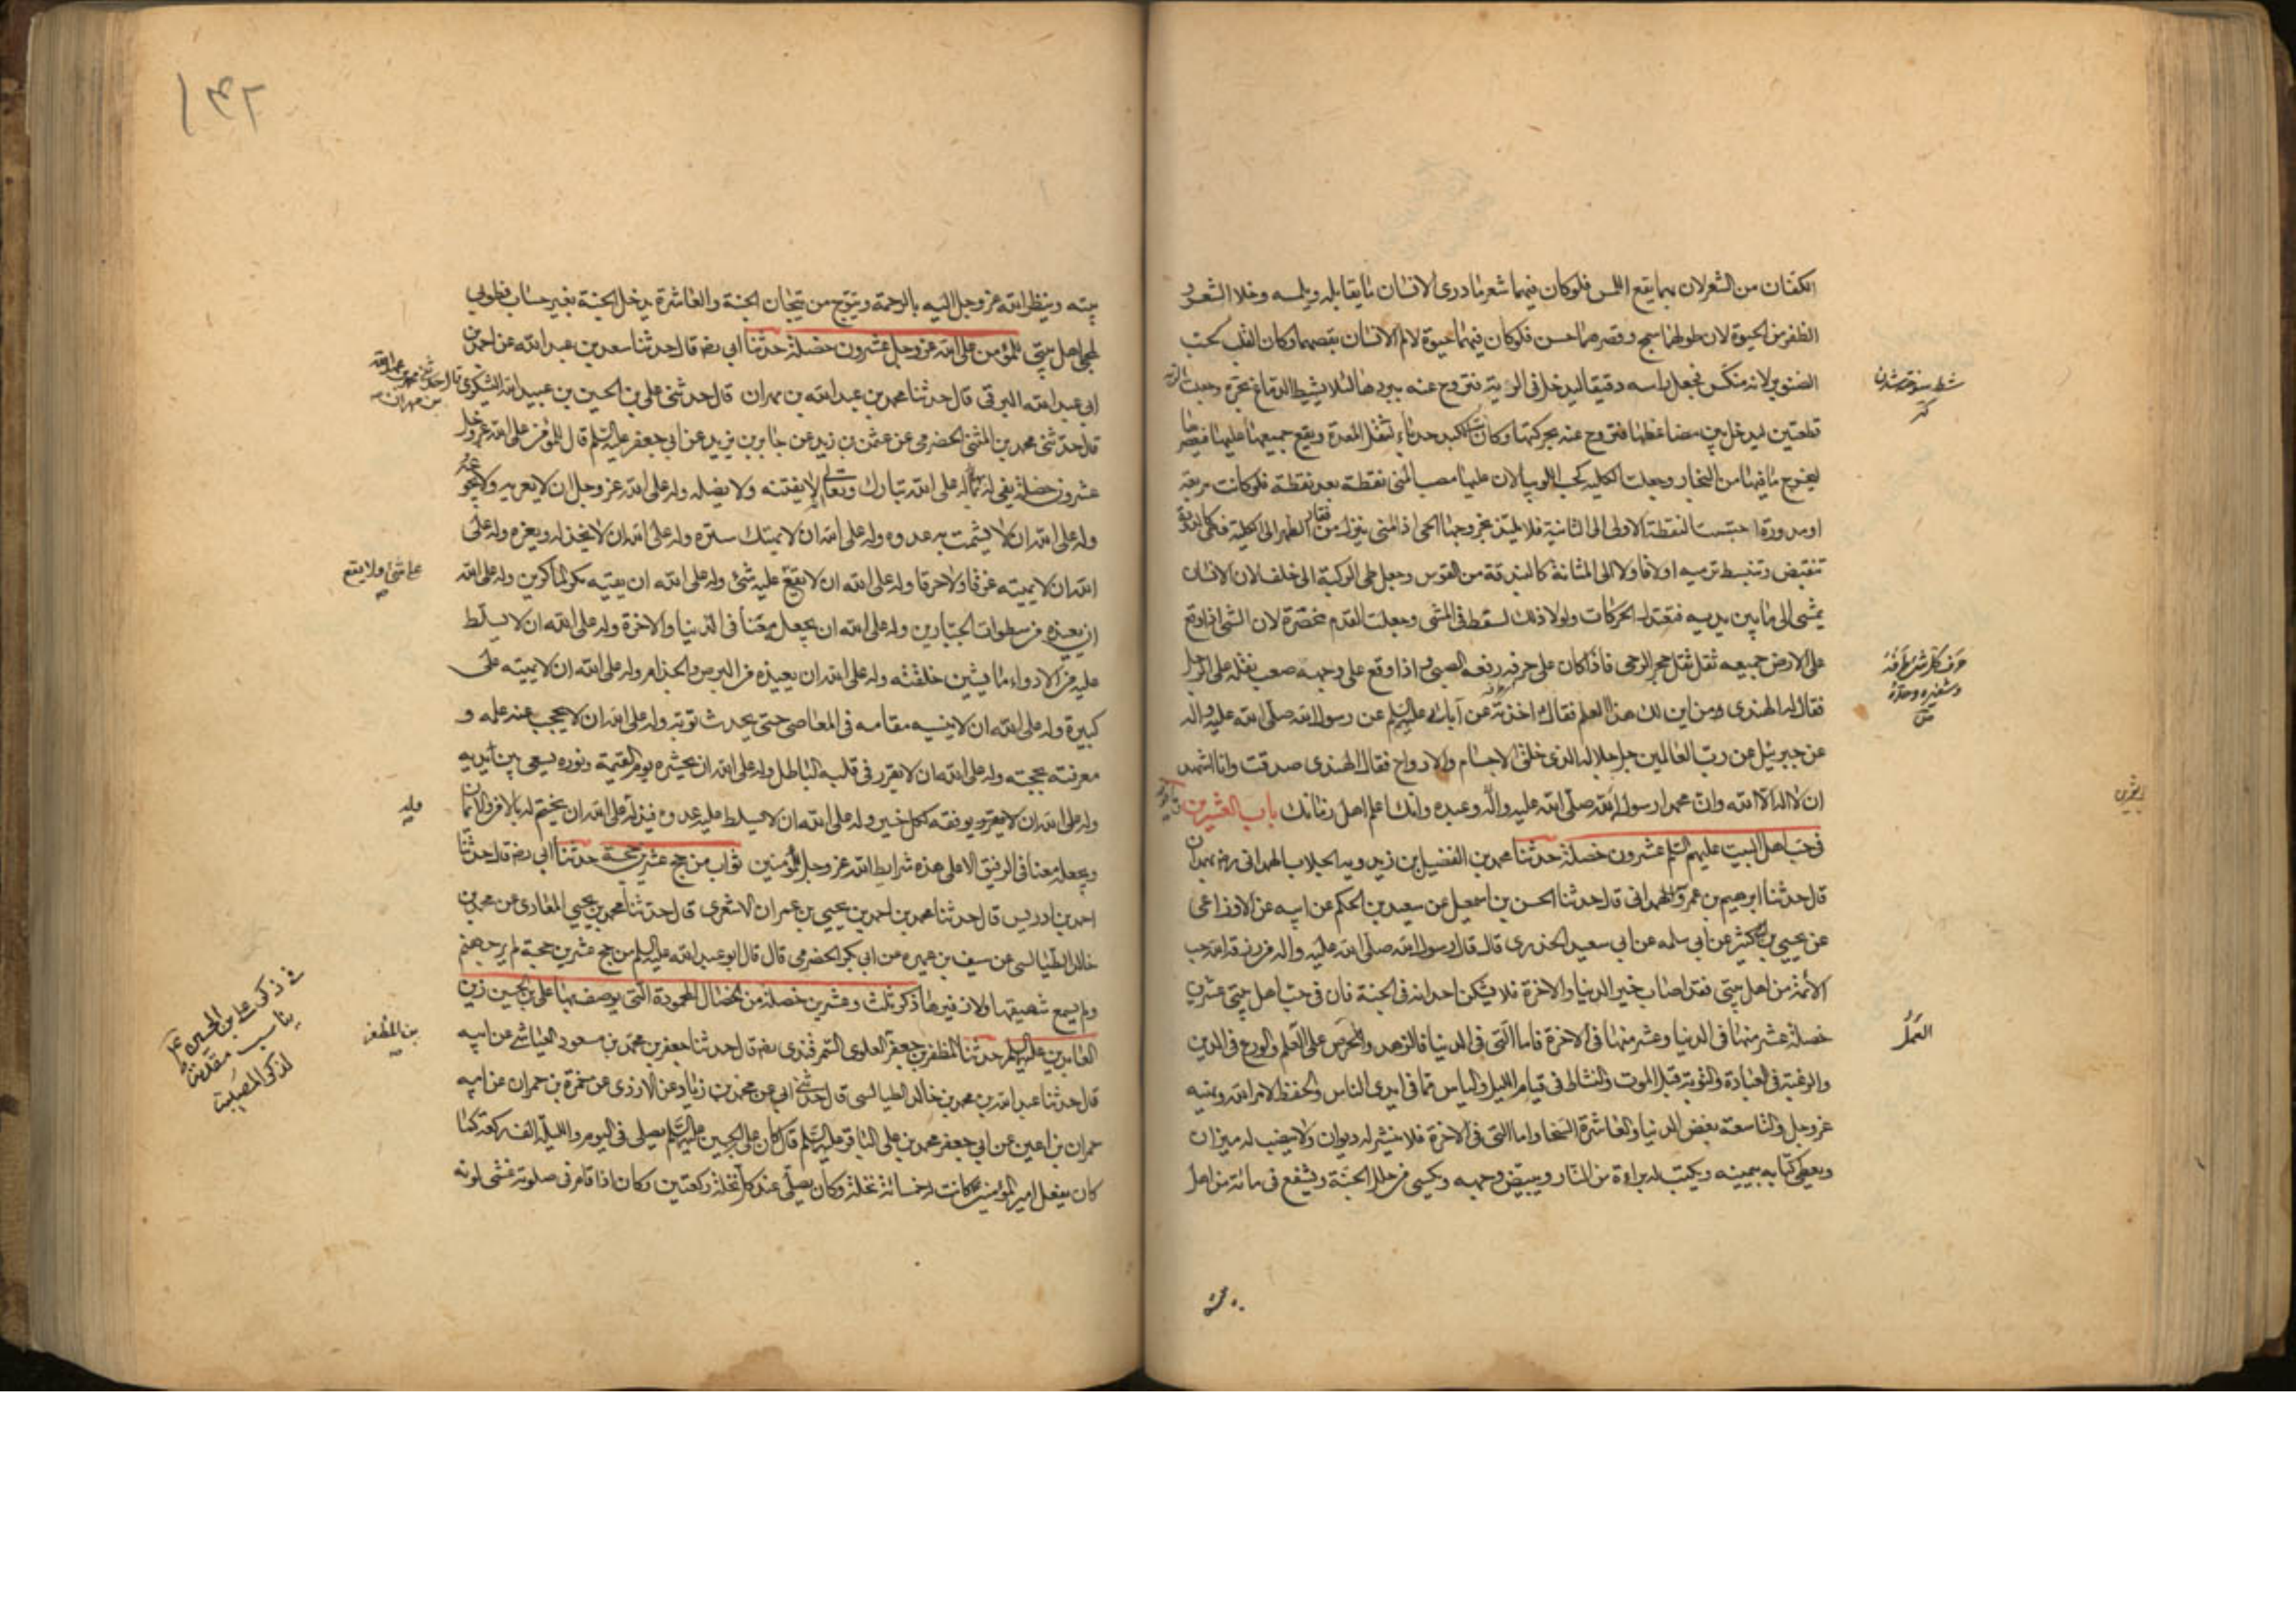 الكفان من الشعر لان بهما يقع اللمس فلو كان فيهما شعر ما درى الانسان ما يقابله ويلمسه وخلا الشعر و
الظفر من الحيوة لان طولهما سمج وقصرهما حسن فلو كان فيهما حيوة لالم الانسان بقصهما وكان القلب كحب
الصنوبر لانه منكس فجعل راسه دقيقا ليدخل في الرية فتروح عنه ببردها لئلا يشيط الدماغ بحره وجعلت الرية
قطعتين ليدخل بين مضاغطها فتروح عنه بحركتها وكان الكبد حدباء لتثقل المعدة ويقع جميعها عليها فيعصرها
ليخرج ما فيها من البخار وجعلت الكلية كحب اللوبيا لان عليها مصب المني نقطة بعد نقطة فلو كانت مربعة
او مدورة احتبست النقطة الاولى الى الثانية فلا يلتذ بخروجها الحي اذ المني ينزل من فقار الظهر الى الكلية فهي كالدودة
تنقبض وتنبسط ترميه اولا فاولا الى المثانة كالبندقة من القوس وجعل طي الركبة الى خلف لان الانسان
يمشي الى ما بين يديه فتعتدل الحركات ولولا ذلك لسقط في المشي وجعلت القدم مخصرة لان الشئ اذا وقع
على الارض جميعه ثقل ثقل حجر الرحى فاذا كان على حرفه رفعه الصبي واذا وقع على وجهه صعب نقله على الرجل
فقال له الهندي ومن اين لك هذا العلم فقال اخذته عن آبائي عليهم السلم عن رسول الله صلى الله عليه واله
عن جبرئيل عن رب العالمين جل جلاله الذي خلق الاجسام والارواح فقال الهندي صدقت وانا اشهد
ان لا اله الا الله وان محمدا رسول الله صلى الله عليه واله وعبده وانك اعلم اهل زمانك باب العشرين
في حب اهل البيت عليهم السلم عشرون خصلة حدثنا محمد بن الفضيل بن زيدويه الجلاب الهمداني بهمدان
قال حدثنا ابرهيم بن عمرو الهمداني قال حدثنا الحسن بن اسمعيل عن سعيد بن الحكم عن ابيه عن الاوزاعي
عن يحيى بن ابي كثير عن ابي سلمه عن ابي سعيد الخدري قال قال رسول الله صلى الله عليه واله من رزقه الله حب
الائمة من اهل بيتي فقد اصاب خير الدنيا والاخرة فلا يشكن احد انه في الجنة فان في حب اهل بيتي عشرين
خصلة عشر منها في الدنيا وعشر منها في الاخرة فاما التي في الدنيا فالزهد والحرص على العلم والورع في الدين
والرغبة في العبادة والتوبة قبل الموت والنشاط في قيام الليل والياس مما في ايدي الناس والحفظ لامر الله ونهيه
عز وجل والتاسعة بغض الدنيا والعاشرة السخا واما التي في الاخرة فلا ينشر له ديوان ولا ينصب له ميزان
ويعطى كتابه بيمينه ويكتب له براءة من النار ويبيض وجهه ويكسى من حلل الجنة ويشفع في مائة من اهل
العمل
بيته وينظر الله عز وجل اليه بالرحمة ويتوج من تيجان الجنة والعاشرة يدخل الجنة بغير حساب فطوبى
لمحبي اهل بيتي للمؤمن على الله عز وجل عشرون خصلة حدثنا ابي رضه قال حدثنا سعد بن عبد الله عن احمد بن
ابي عبد الله البرقي قال حدثنا محمد بن عبد الله بن مهران قال حدثني علي بن الحسين بن عبيد الله اليشكري
قال حدثني محمد بن المثنى الحضرمي عن عثمن بن زيد عن جابر بن يزيد عن ابي جعفر عليه السلم قال للمؤمن على الله عز وجل
عشرون خصلة يفي له بها له على الله تبارك وتعالى ان لا يفتنه ولا يضله وله على الله عز وجل ان لا يعريه ولا يجوعه
وله على الله ان لا يشمت به عدوه وله على الله ان لا يهتك ستره وله على الله ان لا يخذله ويعزه وله على
الله ان لا يميته غرقا ولا حرقا وله على الله ان لا يقع عليه شئ وله على الله ان يقيه مكر الماكرين وله على الله
ان يعيذه من سطوات الجبارين وله على الله ان يجعله معنا في الدنيا والاخرة وله على الله ان لا يسلط
عليه من الادواء ما يشين خلقته وله على الله ان يعيذه من البرص والجذام وله على الله ان لا يميته على
كبيرة وله على الله ان لا ينسيه مقامه في المعاصي حتى يحدث توبة وله على الله ان لا يحجب عنه علمه و
معرفته بحجته وله على الله ان لا يقرر في قلبه الباطل وله على الله ان يحشره يوم القيمة ونوره يسعى بين يديه
وله على الله ان يوفقه لكل خير وله على الله ان لا يسلط عليه عدوه فيذله وله على الله ان يختم له بالامن والايمان
ويجعله معنا في الرفيق الاعلى هذه شرايط الله عز وجل للمؤمنين ثواب من حج عشرين حجة حدثنا ابي رضه قال حدثنا
احمد بن ادريس قال حدثنا محمد بن احمد بن يحيى بن عمران الاشعري قال حدثنا محمد بن يحيى المعاذي عن محمد بن
خالد الطيالسي عن سيف بن عميره عن ابي بكر الحضرمي قال قال ابو عبد الله عليه السلم من حج عشرين حجة لم ير جهنم
ولم يسمع شهيقها ولا زفيرها ذكر ثلث وعشرين خصلة من الخصال المحمودة التي يوصف بها علي بن الحسين زين
العابدين عليه السلم حدثنا المظفر بن جعفر العلوي السمرقندي رضه قال حدثنا جعفر بن محمد بن مسعود العياشي عن ابيه
قال حدثنا عبد الله بن محمد بن خالد الطيالسي قال حدثني ابي عن محمد بن زياد عن الازدي عن حمزة بن حمران عن ابيه
حمران بن اعين عن ابي جعفر محمد بن علي الباقر عليه السلم قال كان علي بن الحسين عليه السلم يصلي في اليوم والليلة الف ركعة كما
كان يفعل امير المؤمنين كانت له خمسائة نخلة وكان يصلي عند كل نخلة ركعتين وكان اذا قام في صلوته غشى لونه
بن المظفر